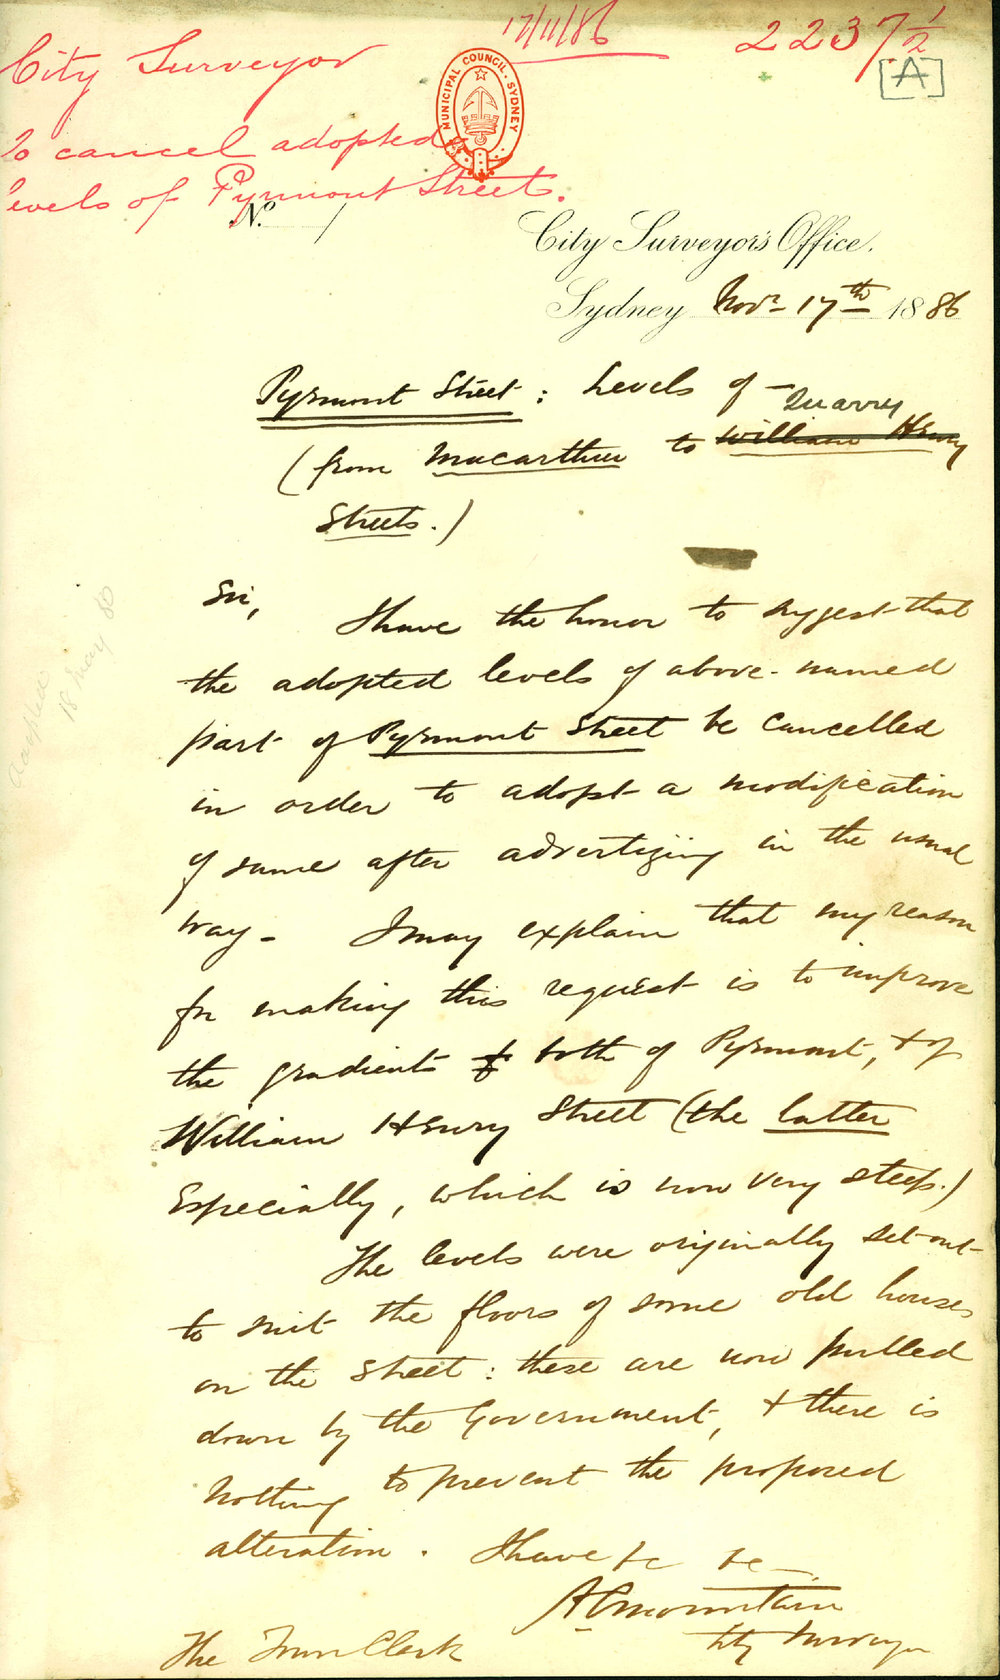 17/11/86
2237½
[A]
City Surveyor
To cancel adopted
levels of Pyrmont Street.
MUNICIPAL COUNCIL. SYDNEY
No. /
City Surveyor's Office.
Sydney Novr 17th 1886
Pyrmont Street : Levels of -
Quarry
(from Macarthur to William Henry
Streets.)
Sir,
I have the honor to suggest that
the adopted levels of above-named
part of Pyrmont Street be cancelled
in order to adopt a modification
of same after advertizing in the usual
way - I may explain that my reason
for making this request is to improve
the gradients of both of Pyrmont, & of
William Henry Street (the latter
Especially, which is now very steep.)
The levels were originally set-out
to suit the floors of some old houses
on the street : these are now pulled
down by the Government, & there is
nothing to prevent the proposed
alteration. I have &c &c
A C Mountain
City Surveyor
The Town Clerk
adopted
18 May 80